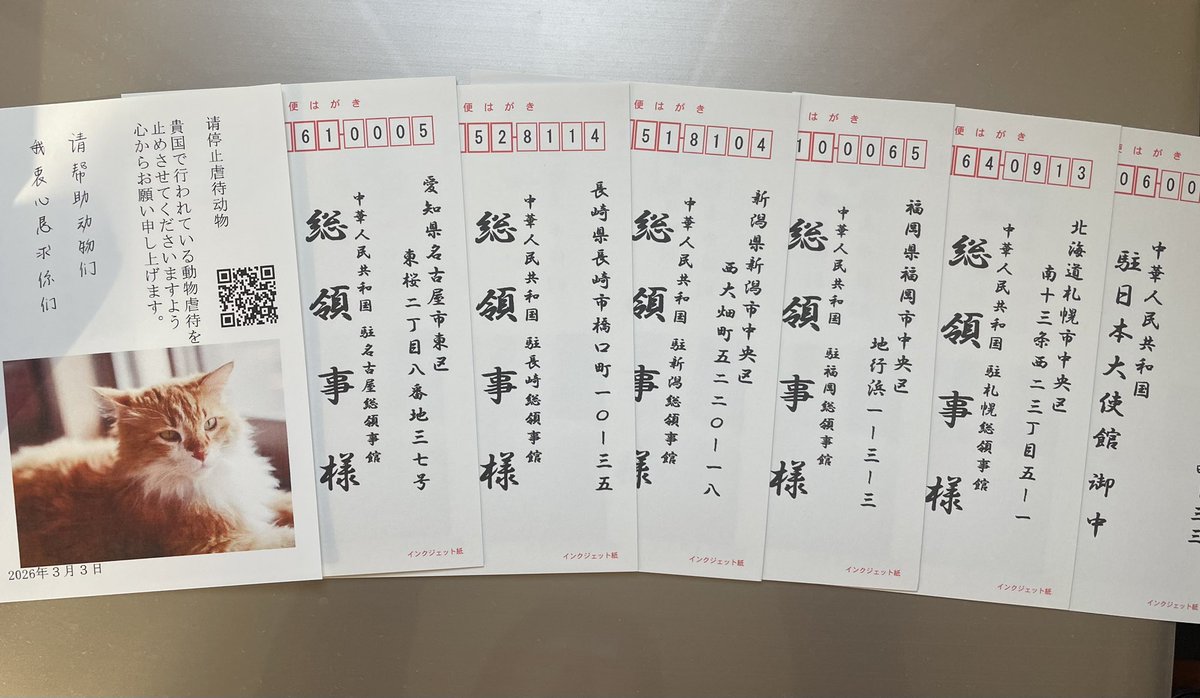 请停止虐待动物
貴国で行われている動物虐待を
止めさせてくださいますよう
心からお願い申し上げます。
请帮助动物们
我衷心恳求係们
2026年3月3日
便はがき
610-0005
愛知県名古屋市東区
東桜二丁目八番地三七号
中華人民共和国 駐名古屋総領事館
総領事様
インクジェット紙
便はがき
528114
長崎県長崎市橋口町一〇ー三五
中華人民共和国 駐長崎総領事館
総領事様
インクジェット紙
便はがき
518104
新潟県新潟市中央区
西大畑町五二二〇ー一八
中華人民共和国 駐新潟総領事館
総領事様
インクジェット紙
はがき
100065
福岡県福岡市中央区
地行浜一ー三ー三
中華人民共和国 駐福岡総領事館
総領事様
インクジェット紙
便はがき
640913
北海道札幌市中央区
南十三条西二三丁目五ー一
中華人民共和国 駐札幌総領事館
総領事様
インクジェット紙
はがき
0600
中華人民共和国
駐日本大使館 御中
インクジェット紙